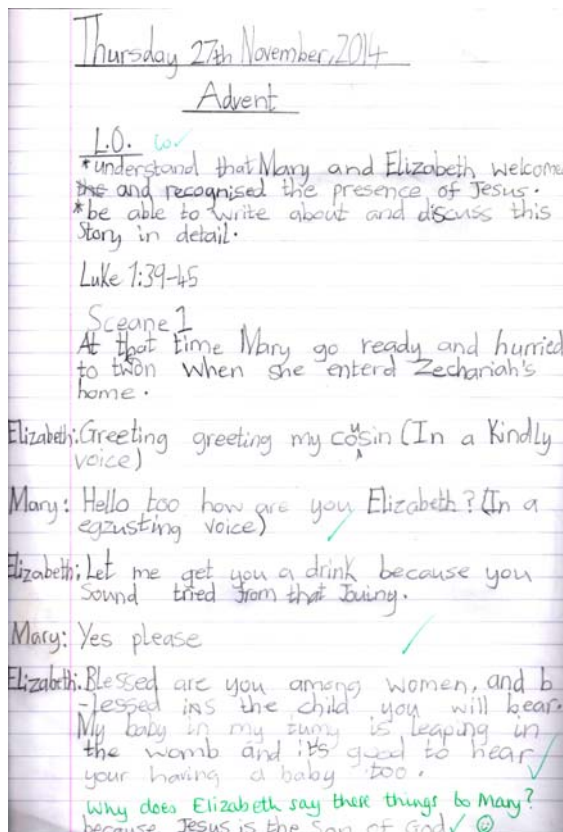 Thursday 27th November, 2014
Advent
L.O.
*understand that Mary and Elizabeth welcome
the and recognised the presence of Jesus.
*be able to write about and discuss this
Story in detail.
Luke 1:39-45
Sceane 1
At that time Mary go ready and hurried
to twon When she enterd Zechariah's
home.
Elizabeth: Greeting greeting my cousin (In a Kindly
voice)
Mary: Hello too how are you Elizabeth? (In a
egzusting voice)
Elizabeth: Let me get you a drink because you
Sound tried from that Jouing.
Mary: Yes please
Elizabeth: Blessed are you among women, and b
-lessed ins the child you will bear.
My baby in my tumy is leaping in
the womb and it's good to hear
your having a baby too.
Why does Elizabeth say these things to Mary?
because Jesus is the Son of God